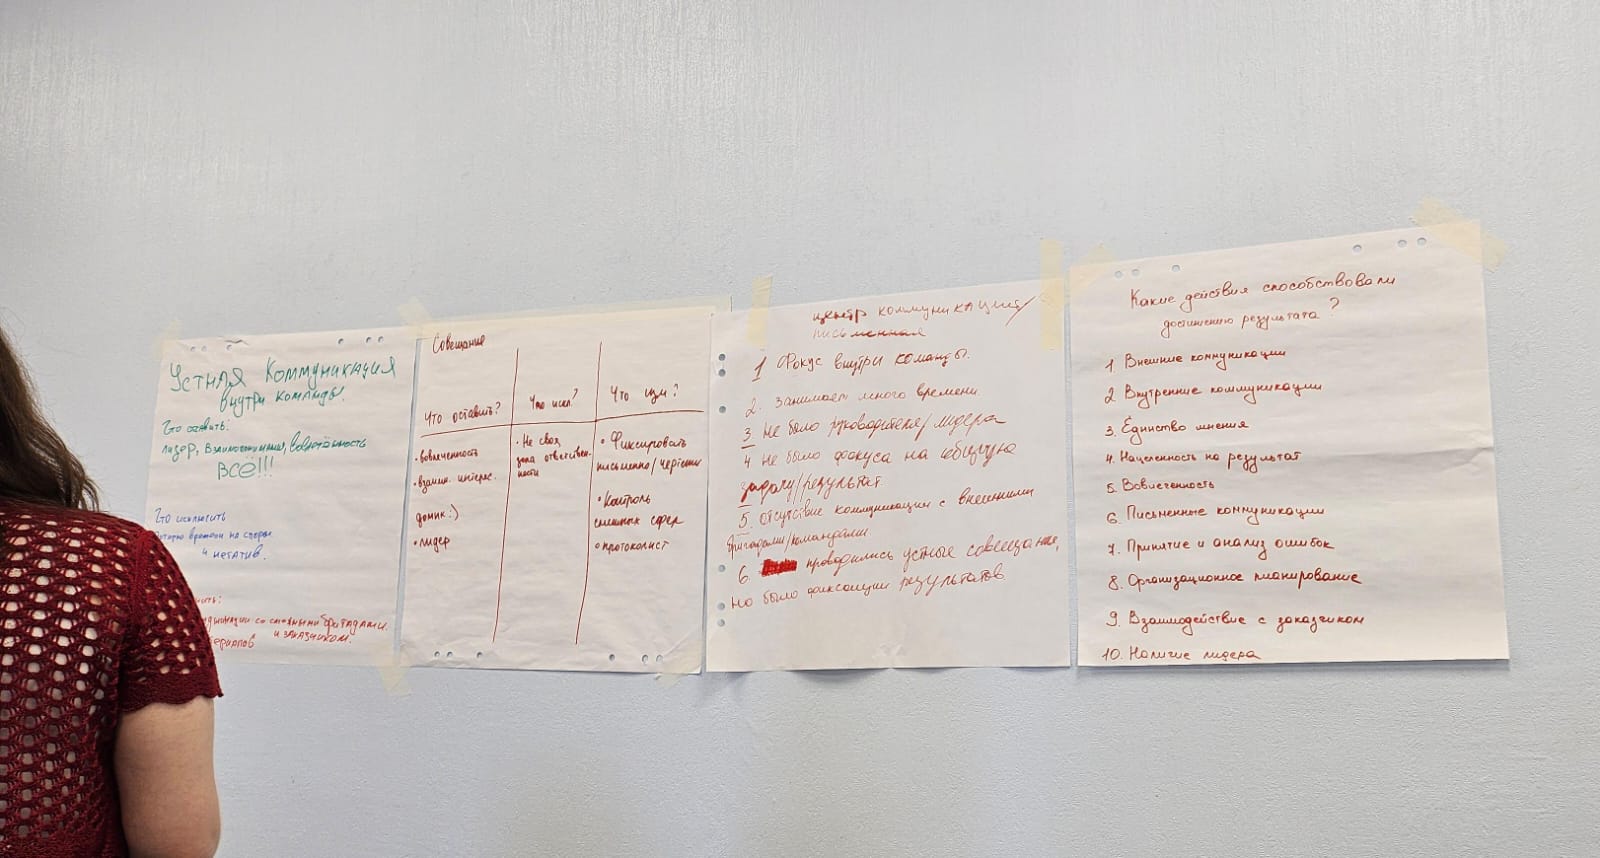 Устная Коммуникация
внутри команды.
Что оставить:
лидер, взаимопонимание, вовлечённость
ВСЁ!!!
Что исключить
времени на споры
и негатив.
со смежными бригадами.
и заказчиком.
Совещание
Что оставить?
• вовлеченность
• взаимн. интерес.
домик :)
• лидер
Что искл?
• Не своя
зона ответствен-
ности
Что изм?
• Фиксировать
письменно/чертежи
• Контроль
смежных сфер
• протоколист
центр коммуникации/
письменная
1 Фокус внутри команды.
2. Занимает много времени
3. Не было руководителя/лидера
4 не было фокуса на общую
задачу/результат
5. отсутствие коммуникации с внешними
бригадами/командами.
6. проводились устные совещания,
но было фиксации результатов.
Какие действия способствовали
достижению результата?
1. Внешние коммуникации
2 Внутренние коммуникации
3. Единство мнения
4. Нацеленность на результат
5. Вовлеченность
6. Письменные коммуникации
7. Принятие и анализ ошибок
8. Организационное планирование
9. Взаимодействие с заказчиком
10. Наличие лидера